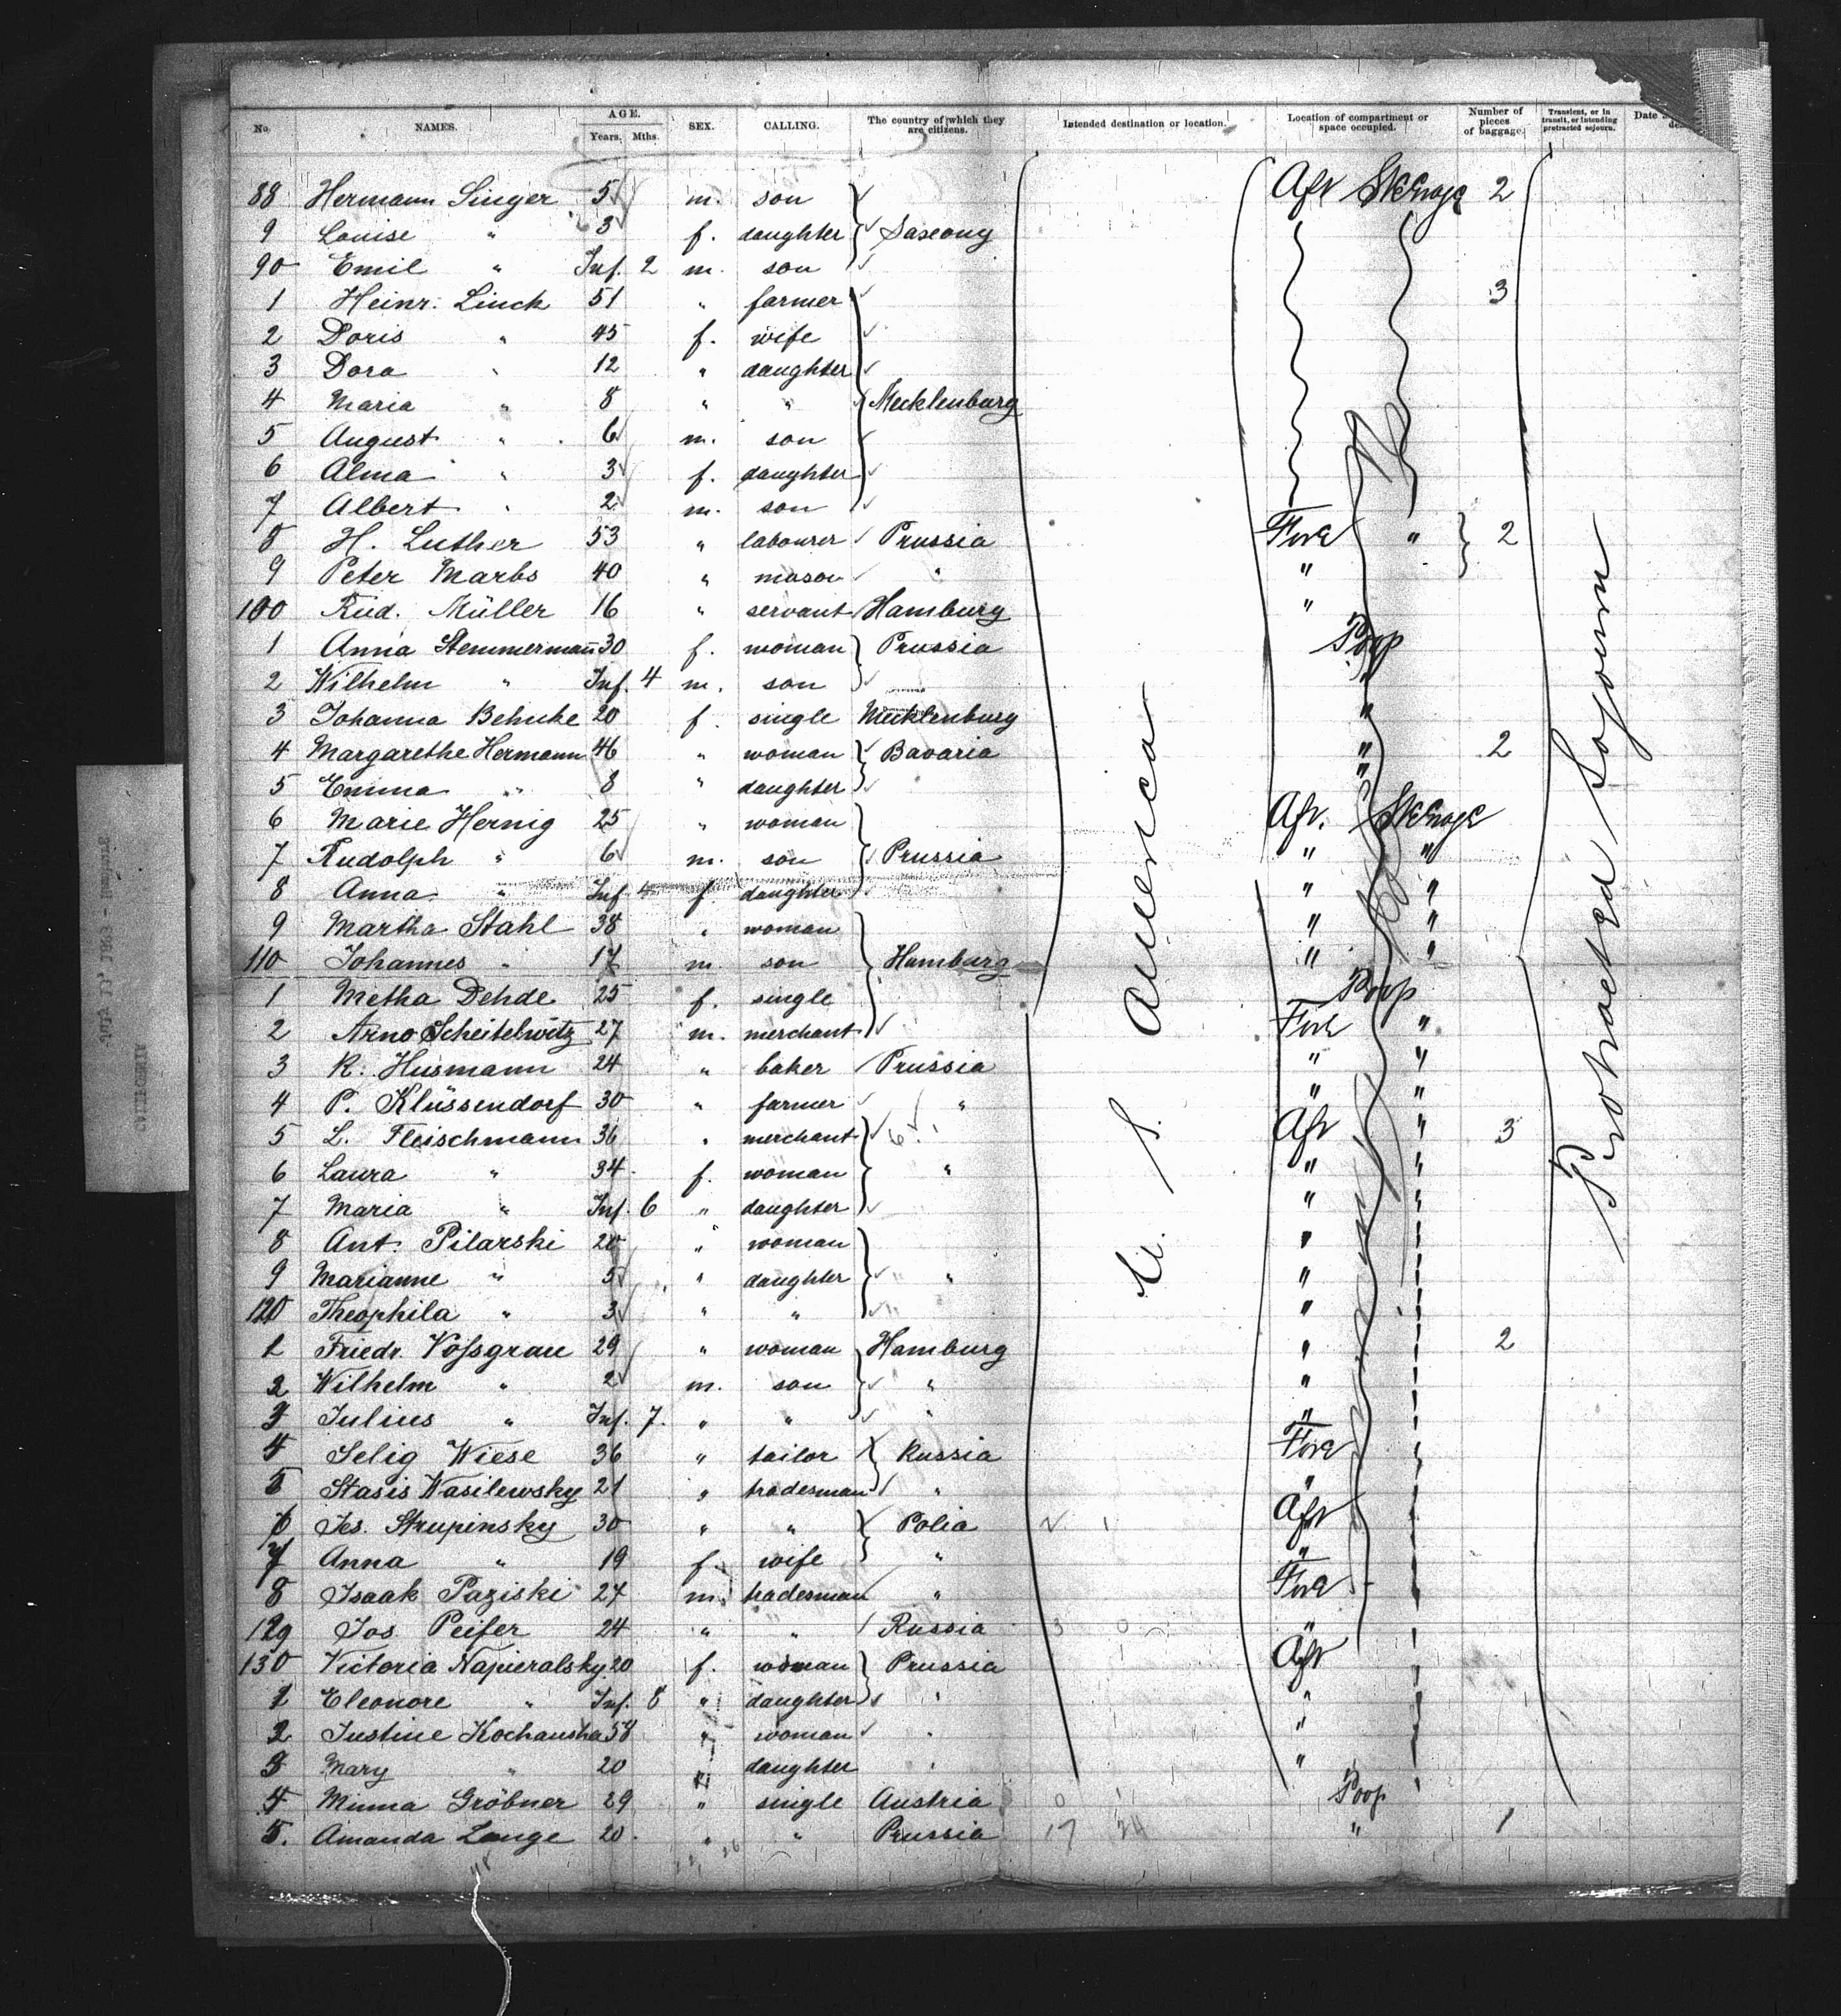 No. NAMES. AGE. Years. Mths. SEX. CALLING. The country of which they are citizens. Intended destination or location. Location of compartment or space occupied. Number of pieces of baggage. Transient, or in transit, or intending protracted sojourn. Date
88 Hermann Singer 5 m. son Aft Steerage 2
9 Louise " 3 f. daughter Saxony
90 Emil " Inf. 2 m. son
1 Heinr. Linck 51 " farmer 3
2 Doris " 45 f. wife
3 Dora " 12 " daughter
4 Maria " 8 " " Mecklenburg
5 August " 6 m. son
6 Alma " 3 f. daughter
7 Albert " 2 m. son
8 H. Luther 53 " labourer Prussia Fore " 2
9 Peter Marbs 40 " mason " "
100 Rud. Müller 16 " servant Hamburg "
1 Anna Stemmermann 30 f. woman Prussia Poop
2 Wilhelm " Inf. 4 m. son "
3 Johanna Behnke 20 f. single Mecklenburg "
4 Margarethe Hermann 46 " woman Bavaria " 2
5 Emma " 8 " daughter "
6 Marie Hernig 25 " woman Aft. Steerage
7 Rudolph " 6 m. son Prussia " "
8 Anna " Inf. 4 f. daughter " "
9 Martha Stahl 38 " woman " "
110 Johannes " 17 m. son Hamburg " "
1 Metha Dehde 25 f. single Poop
2 Arno Scheitelwitz 27 m. merchant Fore "
3 R. Husmann 24 " baker Prussia " "
4 P. Klüssendorf 30 " farmer " " "
5 L. Fleischmann 36 " merchant Aft " 3
6 Laura " 34 f. woman " " "
7 Maria " Inf. 6 " daughter " "
8 Ant. Pilarski 20 " woman " "
9 Marianne " 5 " daughter " " "
120 Theophila " 3 " " " "
1 Friedr. Voßgrau 29 " woman Hamburg " 2
2 Wilhelm " 2 m. son " "
3 Julius " Inf. 7. " " " "
4 Selig Wiese 36 " tailor Russia Fore
5 Stasis Wasilewsky 21 " tradesman " "
6 Jes. Strupinsky 30 " " Polia Aft
7 Anna " 19 f. wife " "
8 Isaak Paziski 27 m. tradesman " Fore
129 Jos. Peifer 24 " " Russia "
130 Victoria Napieralsky 20 f. woman Prussia Aft
1 Eleonore " Inf. 8 " daughter " "
2 Justine Kochanska 58 " woman " "
3 Mary " 20 " daughter " "
4 Minna Gröbner 29 " single Austria Poop
5. Amanda Lange 20. " " Prussia " 1
U. S. America
Protracted Sojourn